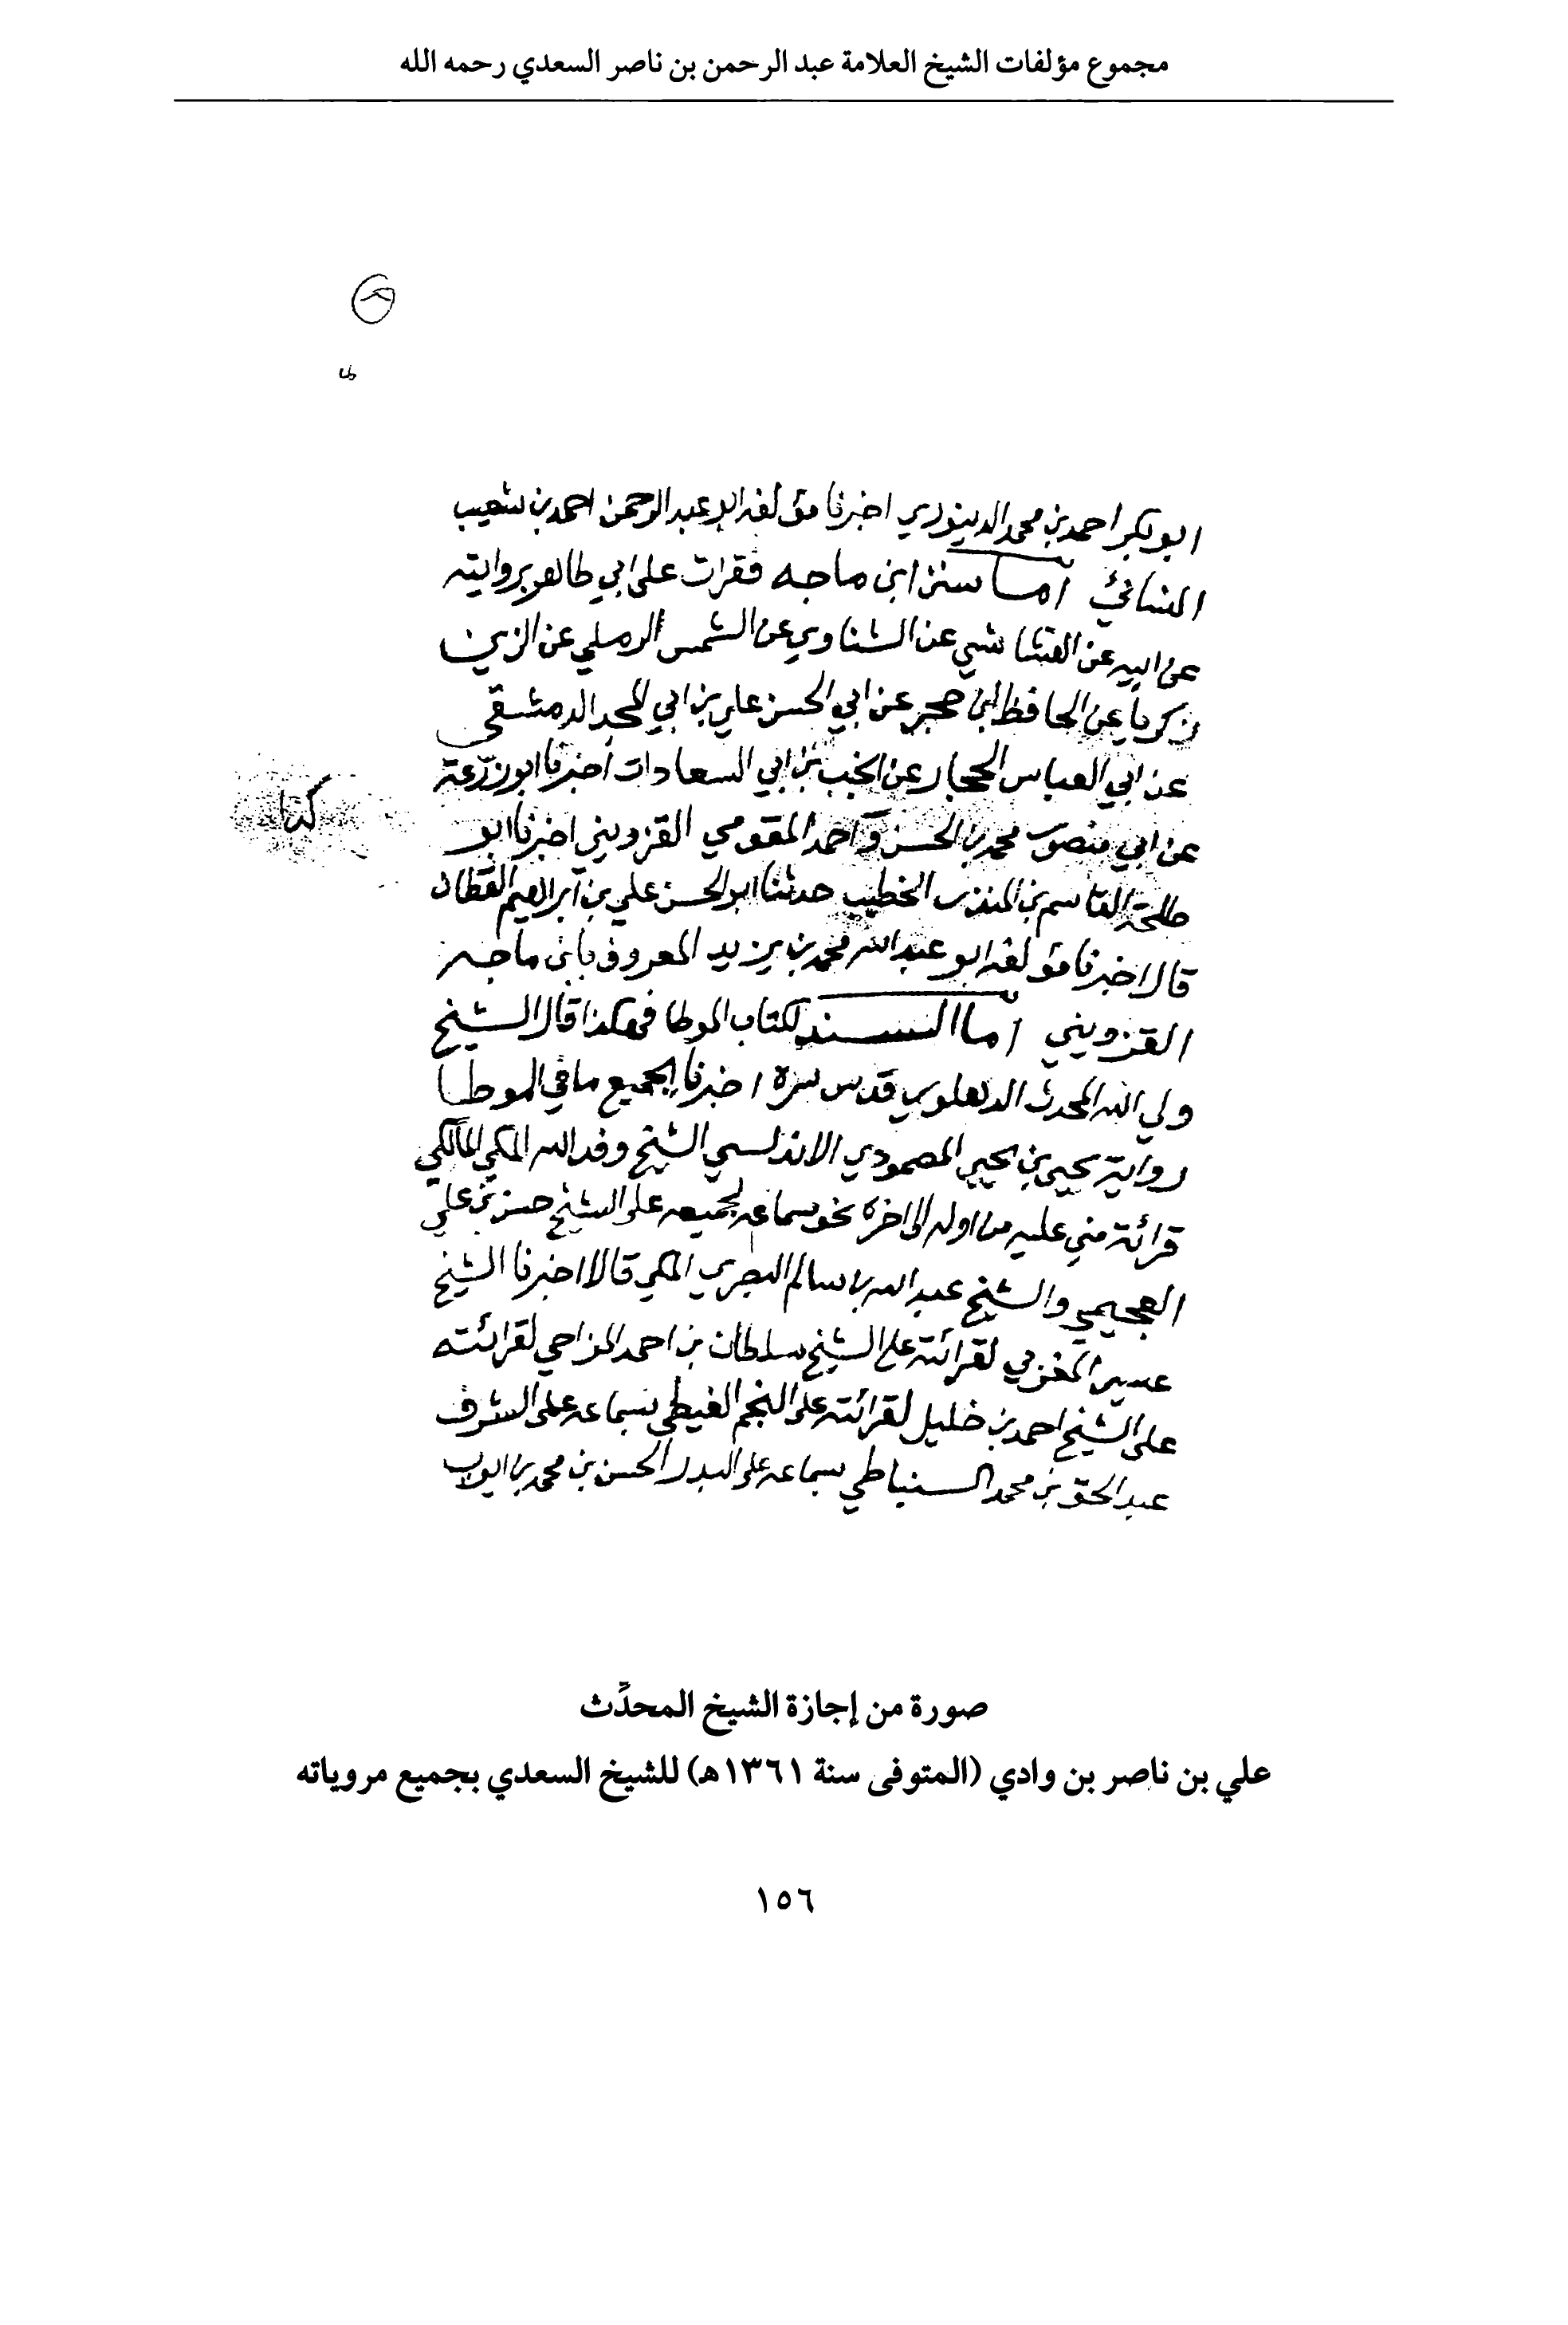 مجموع مؤلفات الشيخ العلامة عبد الرحمن بن ناصر السعدي رحمه الله
ابوبكر احمد بن محمد الدينوري اخبرنا مؤلفه ابو عبد الرحمن احمد بن شعيب
النسائي اما سنن ابن ماجه فقرات على ابي طاهر بروايته
عن ابيه عن القشاشي عن الشناوي عن الشمس الرملي عن الزين
زكريا عن الحافظ ابن حجر عن ابي الحسن علي بن ابي المجد الدمشقي
عن ابي العباس الحجار عن انجب بن ابي السعادات اخبرنا ابوزرعة
كذا
عن ابي منصور محمد بن الحسن واحمد المقومي القزويني اخبرنا ابو
طلحة القاسم بن المنذر الخطيب حدثنا ابو الحسن علي بن ابراهيم القطان
قال اخبرنا مؤلفه ابو عبد الله محمد بن يزيد المعروف بابن ماجه
القزويني اما السند لكتاب الموطا فهكذا قال الشيخ
ولي الله المحدث الدهلوي قدس سره اخبرنا بجميع ما في الموطا
رواية يحيى بن يحيى المصمودي الاندلسي الشيخ وفد الله المكي المالكي
قرائة مني عليه من اوله الى اخره نحو سماعه لجميعه على الشيخ حسن بن علي
العجيمي والشيخ عبد الله بن سالم البصري المكي قالا اخبرنا الشيخ
عيسى المغربي لقرائته على الشيخ سلطان بن احمد المزاحي لقرائته
على الشيخ احمد بن خليل لقرائته على النجم الغيطي بسماعه على الشرف
عبد الحق بن محمد السنباطي بسماعه على البدر الحسن بن محمد بن ايوب
صورة من إجازة الشيخ المحدِّث
علي بن ناصر بن وادي (المتوفى سنة ١٣٦١هـ) للشيخ السعدي بجميع مروياته
١٥٦